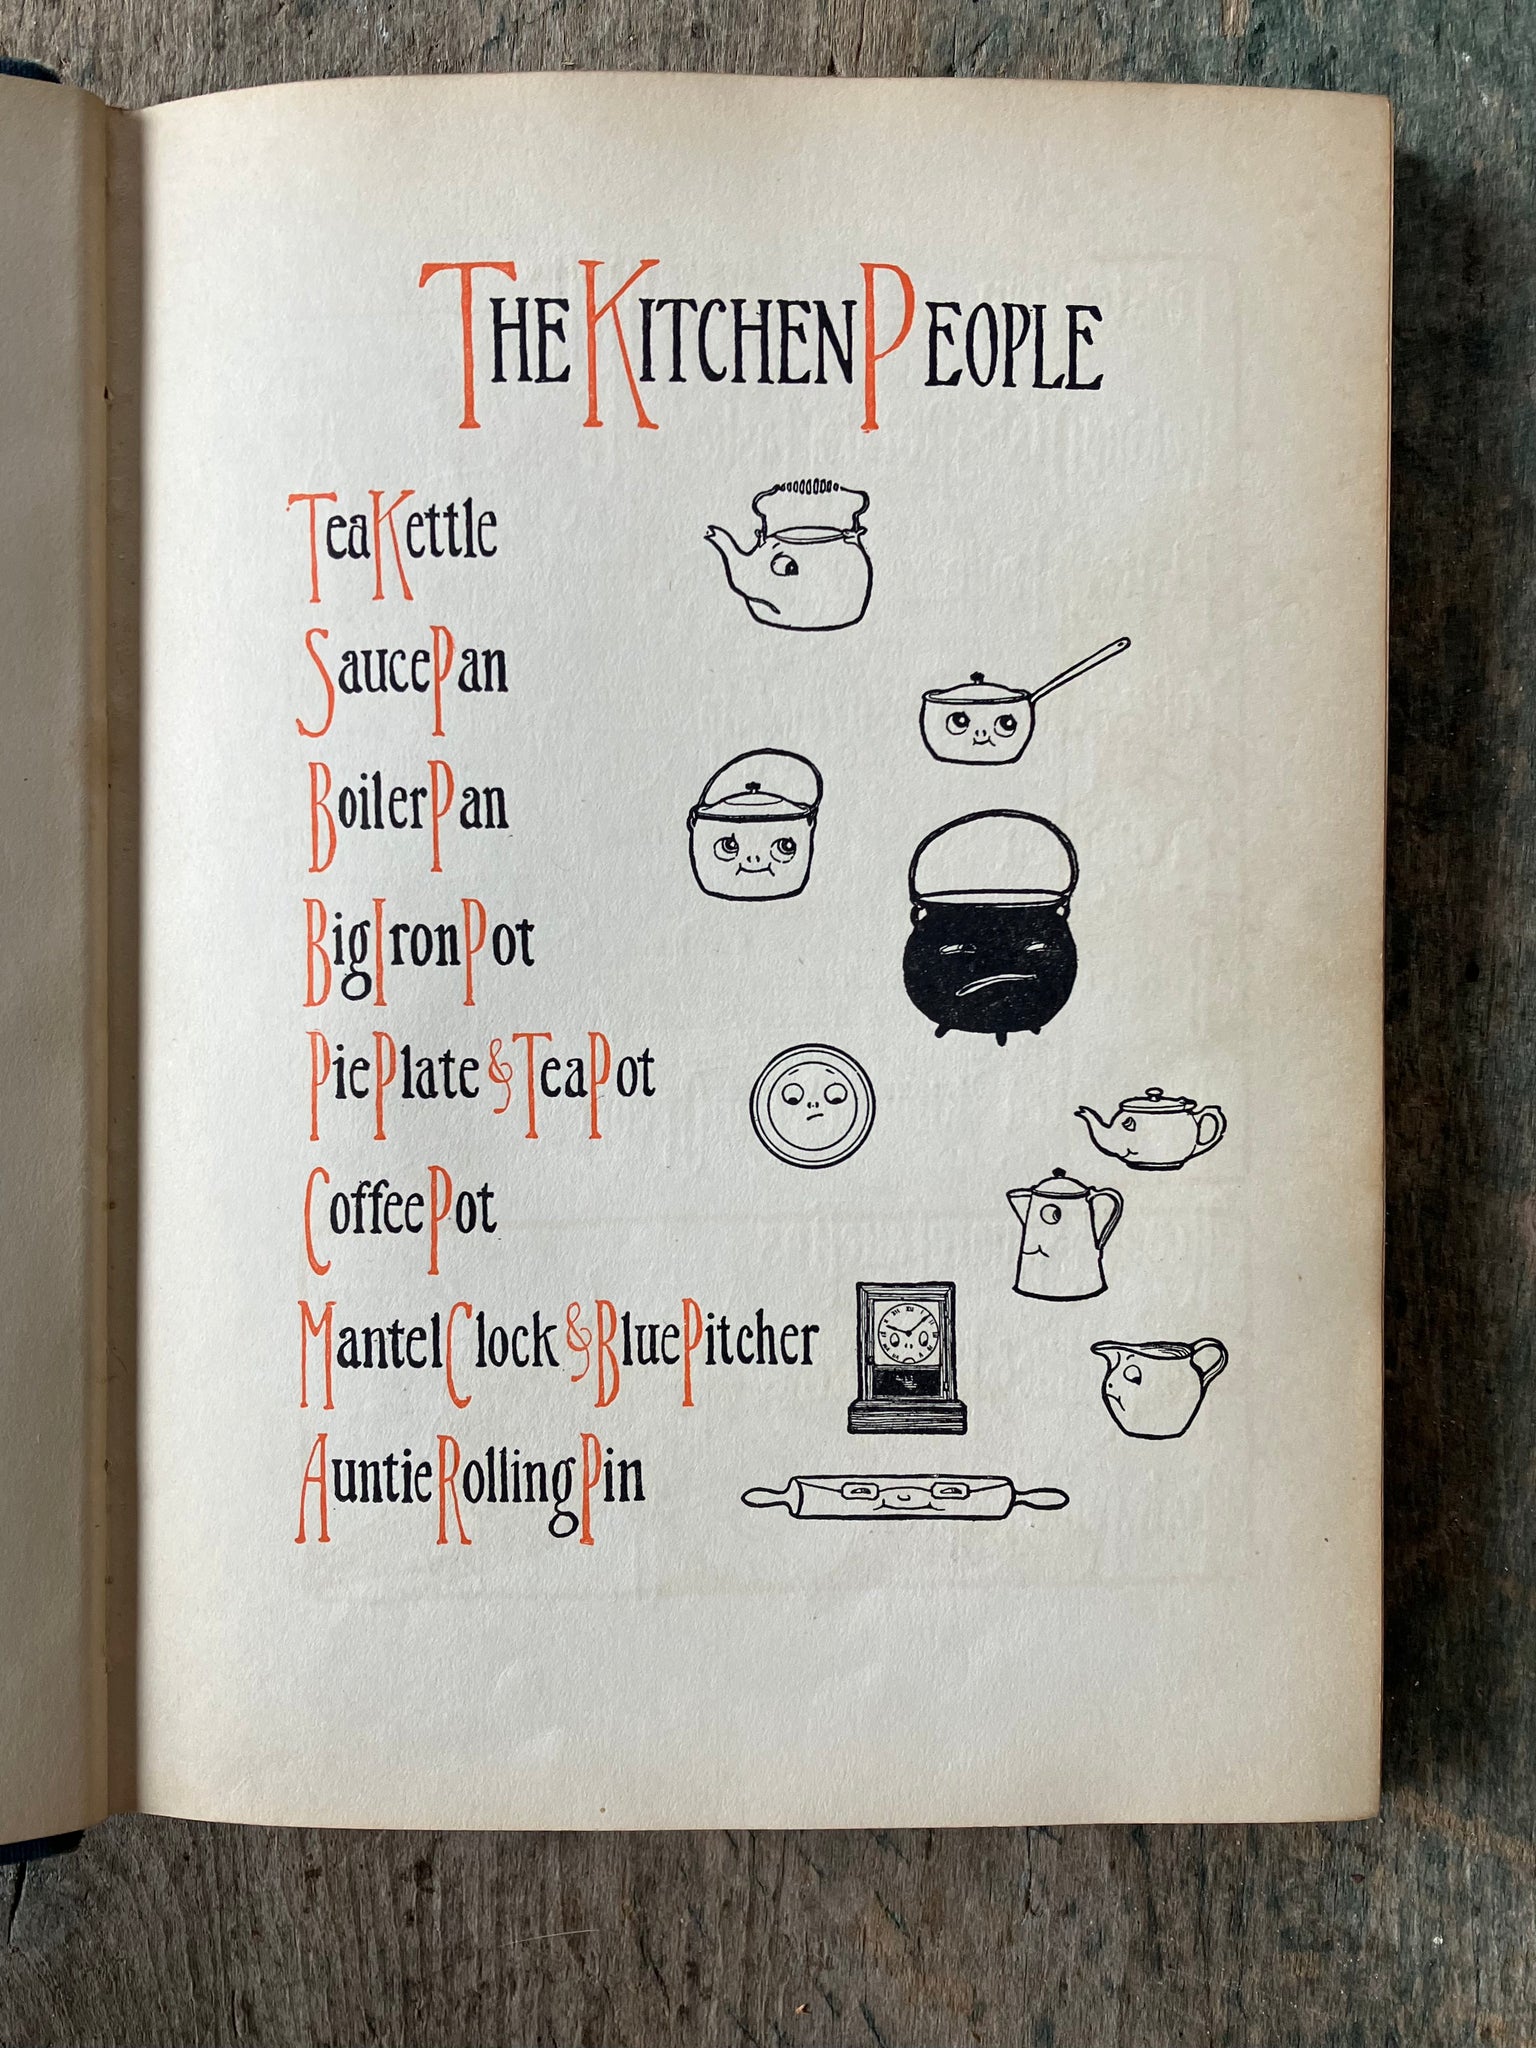 THE KITCHEN PEOPLE
Tea Kettle
Sauce Pan
Boiler Pan
Big Iron Pot
Pie Plate & Tea Pot
Coffee Pot
Mantel Clock & Blue Pitcher
Auntie Rolling Pin